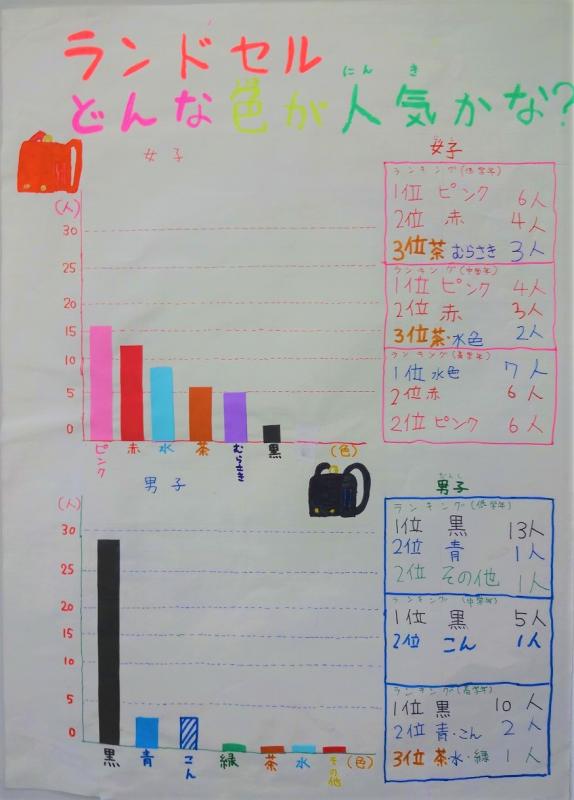 ランドセル
どんな色が人気かな?
にんき
女子
(人)
30
25
20
15
10
5
0
ピンク 赤 水 茶 むらさき 黒 (色)
女子
ランキング(低学年)
1位 ピンク 6人
2位 赤 4人
3位 茶 むらさき 3人
ランキング(中学年)
1位 ピンク 4人
2位 赤 3人
3位 茶・水色 2人
ランキング(高学年)
1位 水色 7人
2位 赤 6人
2位 ピンク 6人
男子
(人)
30
25
20
15
10
5
0
黒 青 こん 緑 茶 水 その他 (色)
だんし
男子
ランキング(低学年)
1位 黒 13人
2位 青 1人
2位 その他 1人
ランキング(中学年)
1位 黒 5人
2位 こん 1人
ランキング(高学年)
1位 黒 10人
2位 青・こん 2人
3位 茶・水・緑 1人